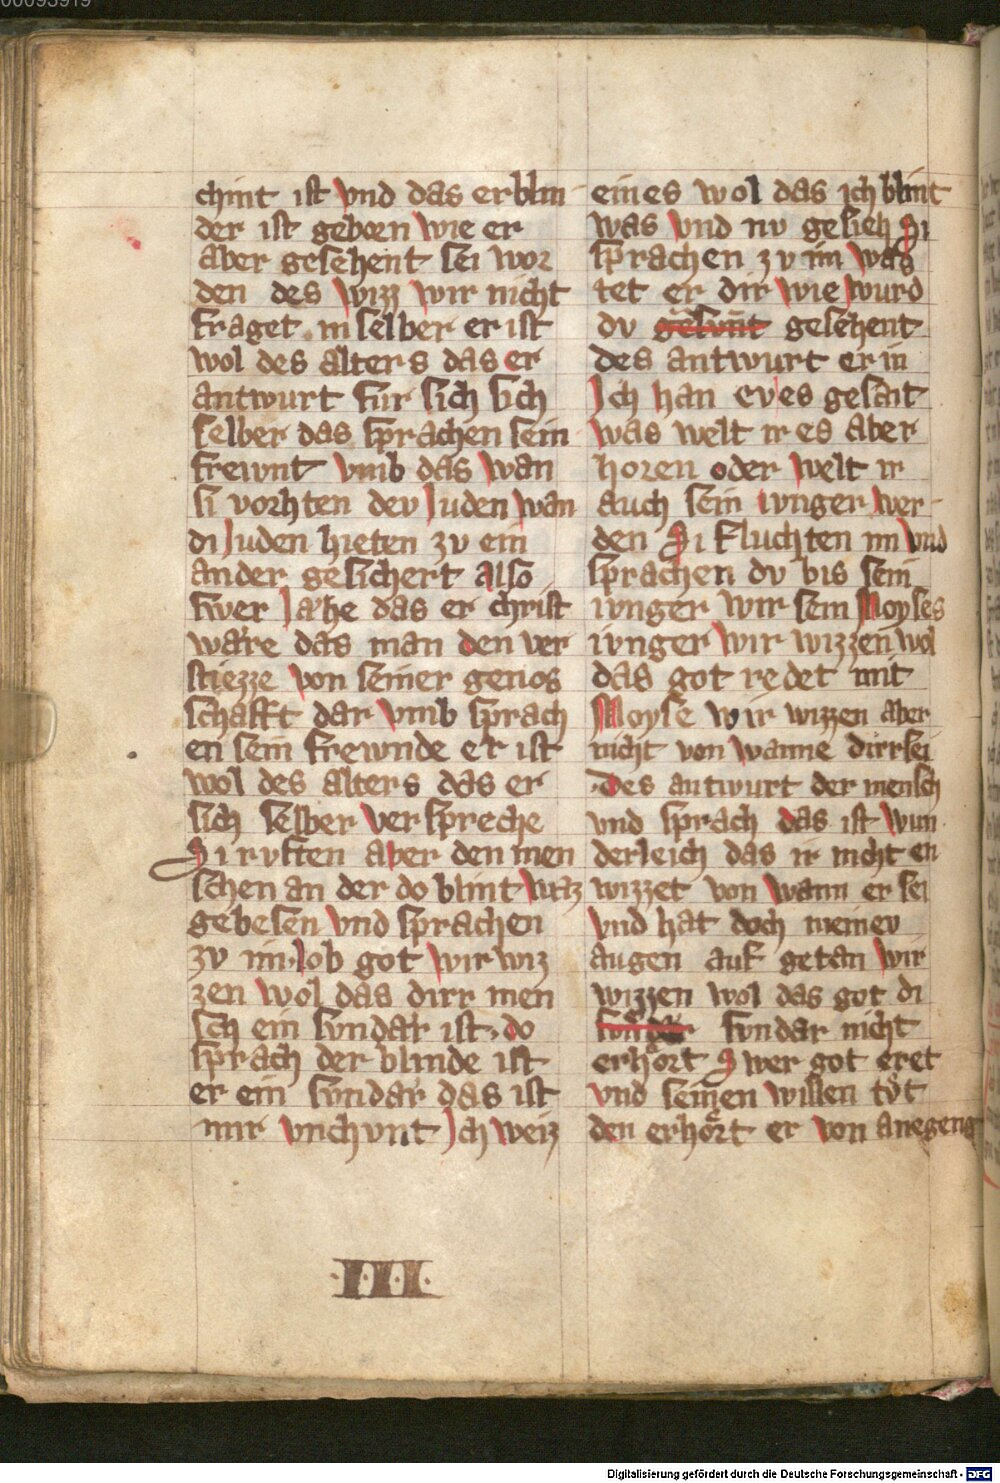 00093919
chint ist vnd das er blin
der ist geborn wie er
aber gesehent sei wor
den des wizz wir nicht
fraget in selber er ist
wol des alters das er
antwurt fur sich sich
selber das sprachen sein
frewnt vmb das wan
si vorhten dev Juden wan
di Juden hieten zv ein
ander gesichert also
swer Jahe das er christ
ware das man den ver
stiezze von seiner genos
schafft dar vmb sprach
en sein frewnde er ist
wol des alters das er
sich selber verspreche
Si ruften aber den men
schen an der do blint waz
gebesen vnd sprachen
zv im lob got wir wiz
zen wol das dirr men
sch ein svndar ist do
sprach der blinde ist
er ein svndar das ist
mir vnchvnt Jch weiz
eines wol das ich blint
was vnd nv gesieh Si
sprachen zv im was
tet er dir wie wurd
dv gesehent
des antwurt er in
Jch han ev es gesait
was welt ir es aber
horen oder welt ir
auch sein ivnger wer
den Si fluchten im vnd
sprachen dv bis sein
ivnger wir sein Moyses
ivnger wir wizzen wol
das got redet mit
Moyse wir wizzen aber
nicht von wanne dirr sei
Des antwurt der mensch
vnd sprach das ist wun
derleich das ir nicht en
wizzet von wann er sei
vnd hat doch meinev
augen auf getan wir
wizzen wol das got di
svndar nicht
erhort Swer got eret
vnd seinen willen tvt
den erhort er von anegeng
III
Digitalisierung gefördert durch die Deutsche Forschungsgemeinschaft - DFG